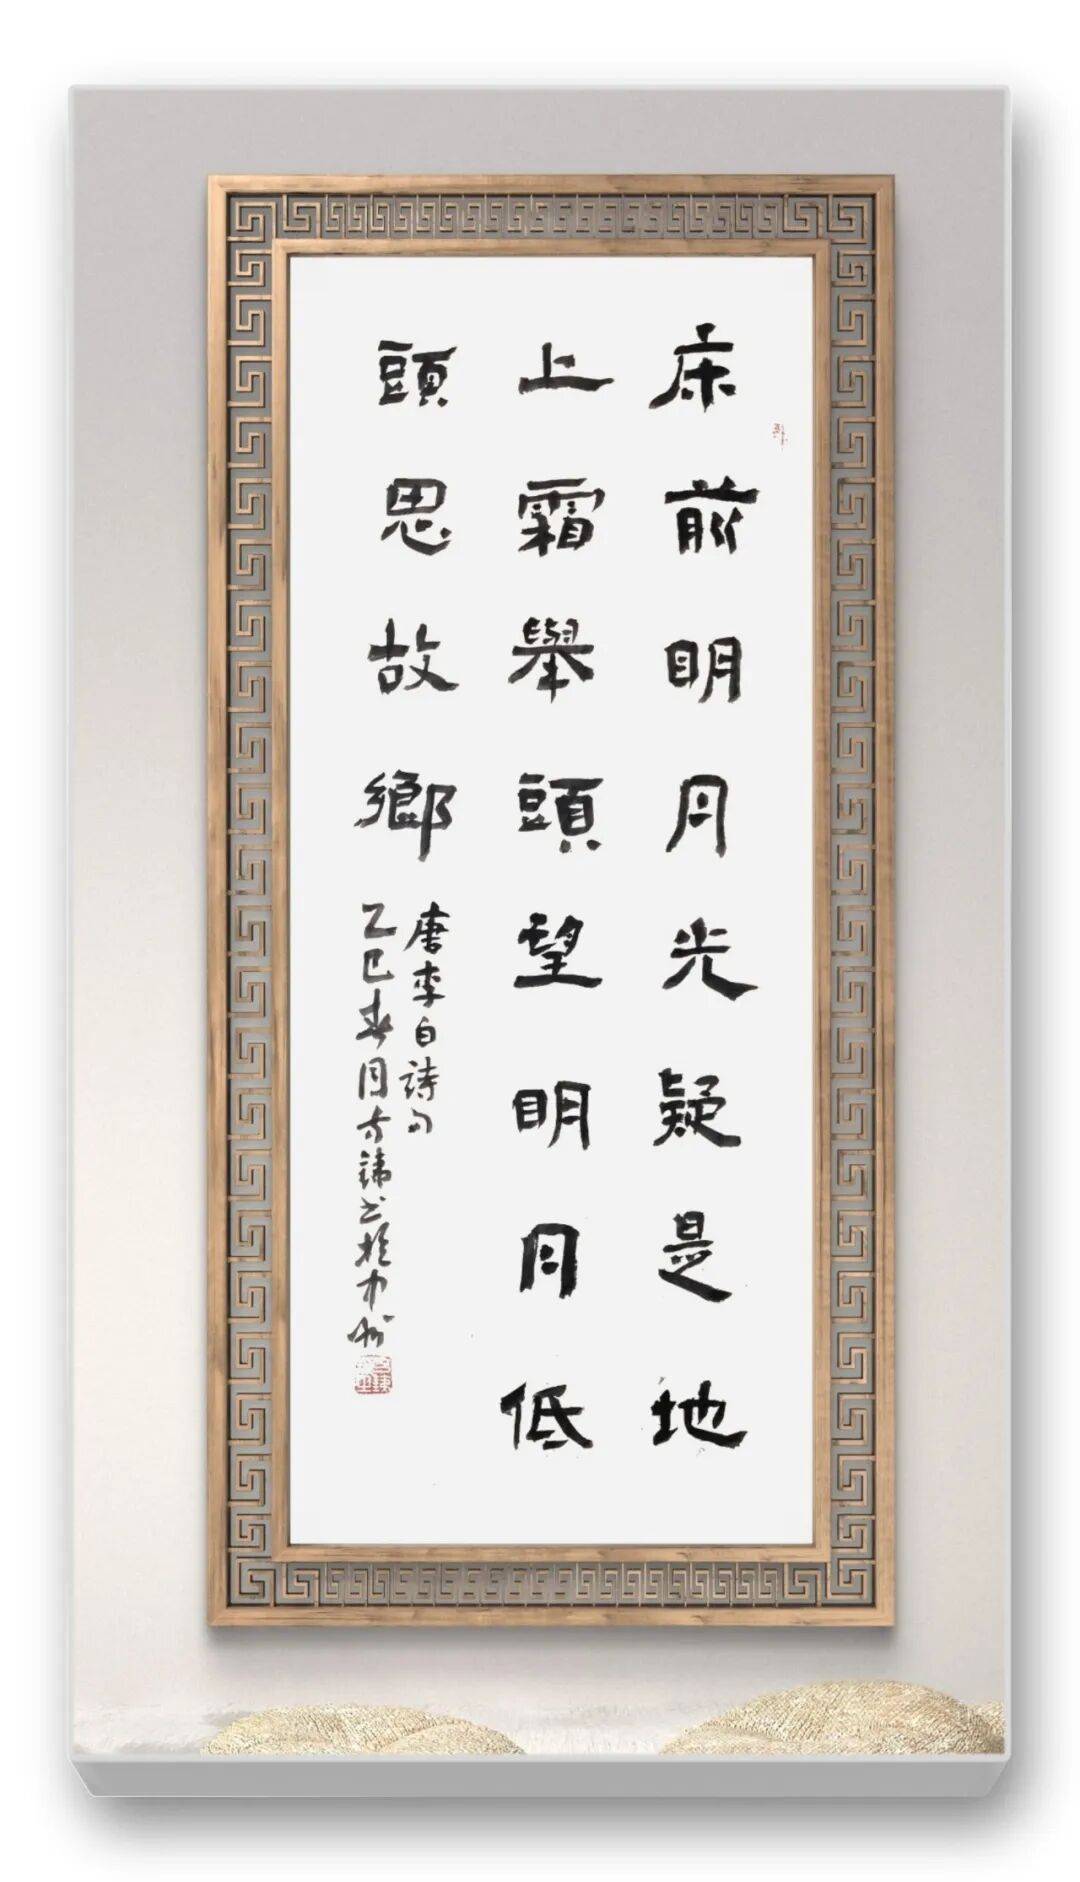 床前明月光疑是地
上霜舉頭望明月低
頭思故鄉
唐李白詩句
乙巳春月方鏽书於中州